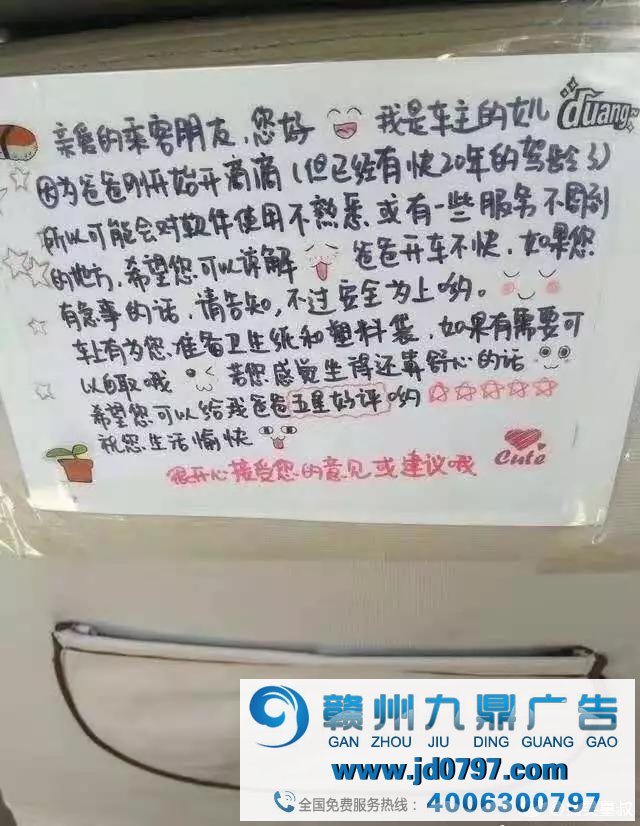 亲爱的乘客朋友，您好 我是车主的女儿
duang
因为爸爸刚开始开滴滴(但已经有快20年的驾龄了)
所以可能会对软件使用不熟悉或有一些服务不周到
的地方，希望您可以谅解 爸爸开车不快，如果您
有急事的话，请告知，不过安全为上哟。
车上有为您准备卫生纸和塑料袋，如果有需要可
以自取哦 若您感觉坐得还算舒心的话
希望您可以给我爸爸五星好评哟☆☆☆☆☆
祝您生活愉快
Cute
很开心接受您的意见或建议哦
赣州九鼎广告
GAN ZHOU JIU DING GUANG GAO
www.jd0797.com
全国免费服务热线：4006300797